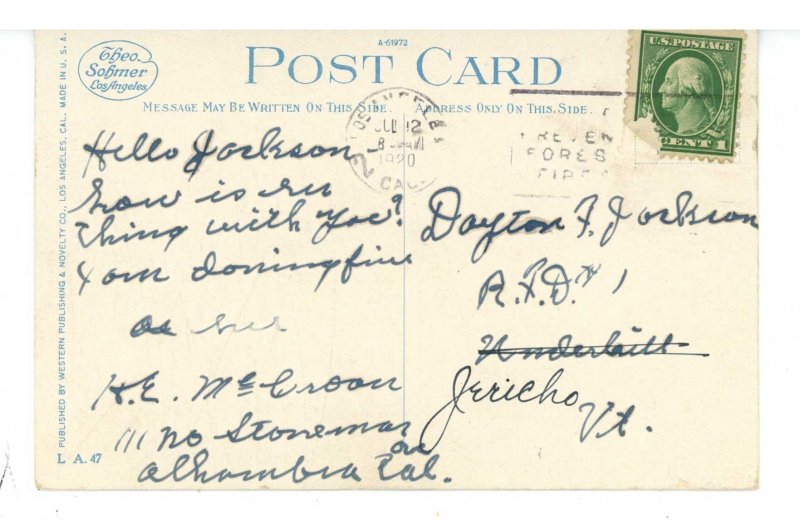 A-61972
Theo.
Sohmer
Los Angeles
POST CARD
MESSAGE MAY BE WRITTEN ON THIS SIDE. ADDRESS ONLY ON THIS SIDE.
U.S. POSTAGE
CENT 1
LOS ANGELES
JUL 12
8 AM
1920
CAL.
REVEN
FORES
FIRE
Hello Jackson
how is
Thing with you?
I am doning fine
as
H.E. McCroan
111 No Stoneman
ave
Alhambra Cal.
Dayton F. Jackson
R.F.D. # 1
Underhill
Jericho
Vt.
PUBLISHED BY WESTERN PUBLISHING & NOVELTY CO., LOS ANGELES, CAL. MADE IN U. S. A.
L. A. 47